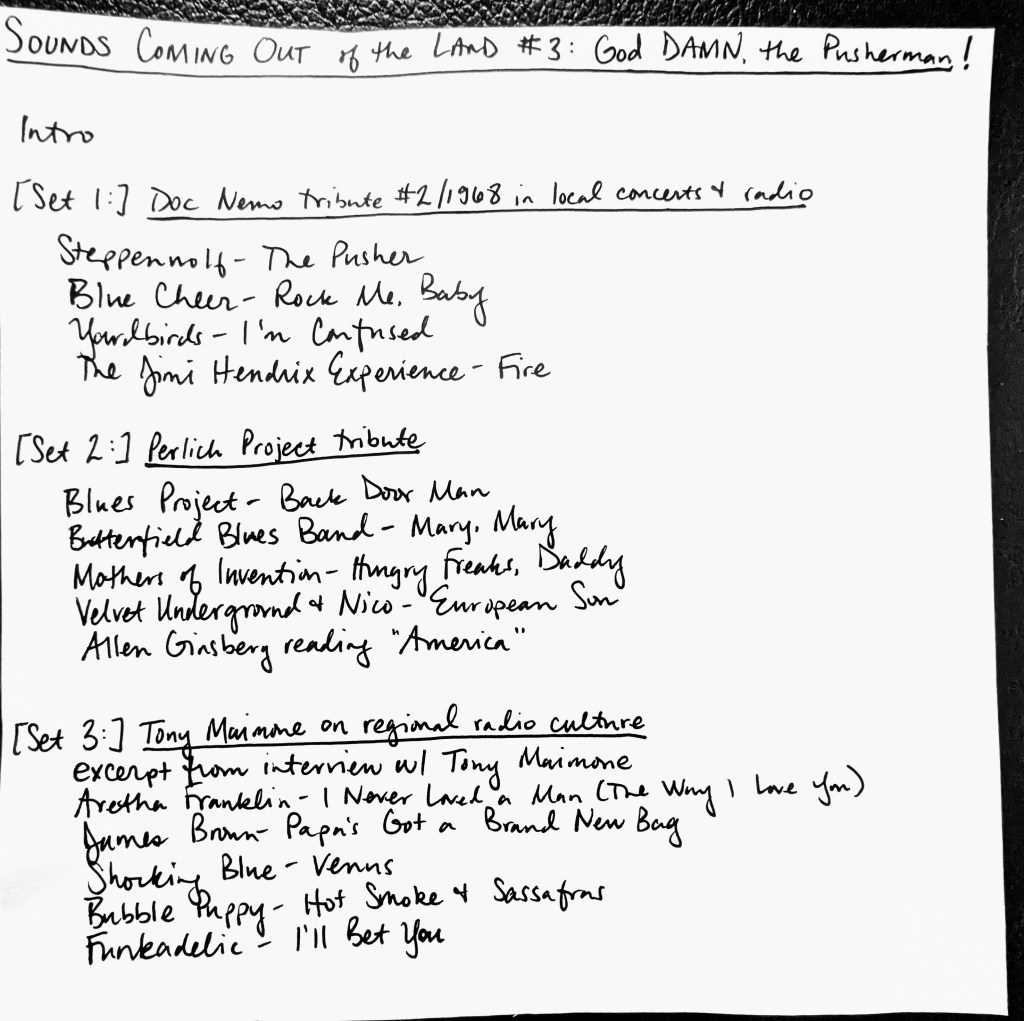 SOUNDS COMING OUT of the LAND #3: God DAMN, the Pusherman!
Intro
[Set 1:] Doc Nemo tribute #2/1968 in local concerts & radio
Steppenwolf - The Pusher
Blue Cheer - Rock Me, Baby
Yardbirds - I'm Confused
The Jimi Hendrix Experience - Fire
[Set 2:] Perlich Project tribute
Blues Project - Back Door Man
Butterfield Blues Band - Mary, Mary
Mothers of Invention - Hungry Freaks, Daddy
Velvet Underground & Nico - European Son
Allen Ginsberg reading "America"
[Set 3:] Tony Maimone on regional radio culture
excerpt from interview w/ Tony Maimone
Aretha Franklin - I Never Loved a Man (The Way I Love You)
James Brown - Papa's Got a Brand New Bag
Shocking Blue - Venus
Bubble Puppy - Hot Smoke & Sassafras
Funkadelic - I'll Bet You